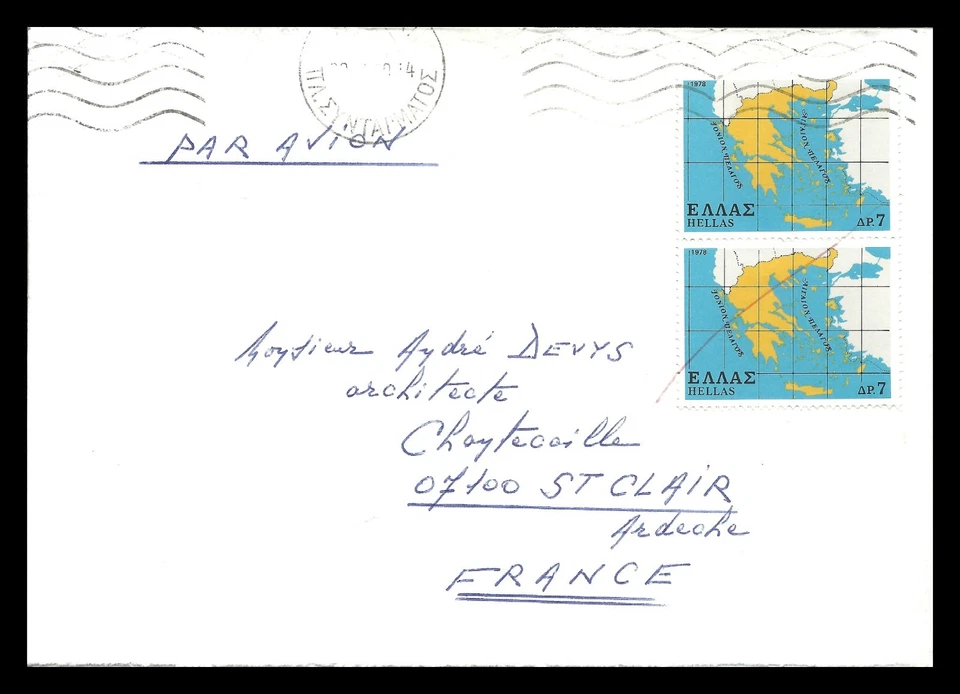 ΠΛ. ΣΥΝΤΑΓΜΑΤΟΣ
PAR AVION
1978
ΙΟΝΙΟΝ ΠΕΛΑΓΟΣ
ΑΙΓΑΙΟΝ ΠΕΛΑΓΟΣ
ΕΛΛΑΣ
HELLAS
ΔΡ. 7
1978
ΙΟΝΙΟΝ ΠΕΛΑΓΟΣ
ΑΙΓΑΙΟΝ ΠΕΛΑΓΟΣ
ΕΛΛΑΣ
HELLAS
ΔΡ. 7
Monsieur André DEVYS
architecte
Chantecaille
07100 ST CLAIR
Ardeche
FRANCE